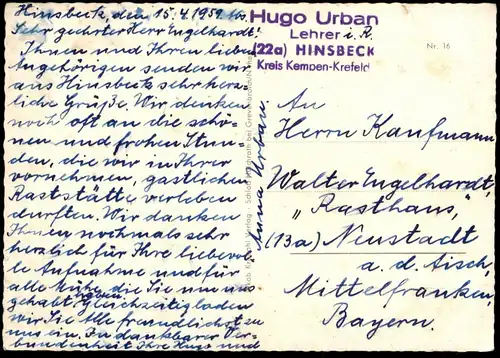 Hinsbeck, den 15.4.1959
Sehr geehrter Herr Engelhardt!
Ihnen und Ihren lieben
Angehörigen senden wir
aus Hinsbeck sehr herz-
liche Grüße. Wir denken
noch oft an die schö-
nen und frohen Stun-
den, die wir in Ihrer
vornehmen, gastlichen
Raststätte verleben
durften. Wir danken
Ihnen nochmals sehr
herzlich für Ihre liebevol-
le Aufnahme und für
alle Mühe, die Sie um uns
gehabt haben. Gleichzeitig laden
wir Sie Alle freundlichst zu
uns ein. In dankbarer Ver-
bundenheit Ihre Hugo und
Anna Urban.
Hugo Urban
Lehrer i. R.
(22a) HINSBECK
Kreis Kempen-Krefeld
Nr. 16
An
Herrn Kaufmann
Walter Engelhardt,
"Rasthaus,"
(13a) Neustadt
a. d. Aisch,
Mittelfranken,
Bayern.